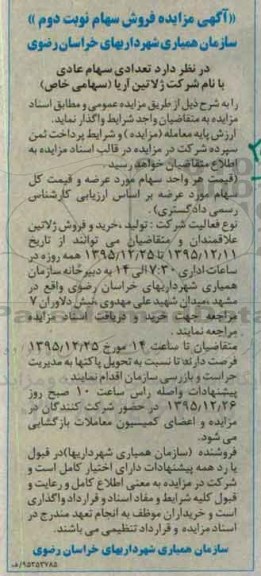 «آگهی مزایده فروش سهام نوبت دوم»
سازمان همیاری شهرداریهای خراسان رضوی
در نظر دارد تعدادی سهام عادی
با نام شرکت ژلاتین آریا (سهامی خاص)
را به شرح ذیل از طریق مزایده عمومی و مطابق اسناد
مزایده به متقاضیان واجد شرایط واگذار نماید.
ارزش پایه معامله (مزایده) و شرایط پرداخت ثمن
سپرده شرکت در مزایده در قالب اسناد مزایده به
اطلاع متقاضیان خواهد رسید.
(قیمت هر واحد سهام مورد عرضه و قیمت کل
سهام مورد عرضه بر اساس ارزیابی کارشناس
رسمی دادگستری).
نوع فعالیت شرکت: تولید، خرید و فروش ژلاتین
علاقمندان و متقاضیان می توانند از تاریخ
۱۳۹۵/۱۲/۱۱ تا ۱۳۹۵/۱۲/۲۵ همه روزه در
ساعات اداری ۷:۳۰ الی ۱۴ به دبیرخانه سازمان
همیاری شهرداریهای خراسان رضوی واقع در
مشهد، میدان شهید علی مهدوی، نبش دلاوران ۷
مراجعه جهت خرید و دریافت اسناد مزایده
مراجعه نمایند.
متقاضیان تا ساعت ۱۴ مورخ ۱۳۹۵/۱۲/۲۵
فرصت دارند تا نسبت به تحویل پاکتها به مدیریت
حراست و بازرسی سازمان اقدام نمایند.
پیشنهادات واصله راس ساعت ۱۰ صبح روز
۱۳۹۵/۱۲/۲۶ در حضور شرکت کنندگان در
مزایده و اعضای کمیسیون معاملات بازگشایی
می شود.
فروشنده (سازمان همیاری شهرداریها) در قبول
یا رد همه پیشنهادات دارای اختیار کامل است و
شرکت در مزایده به معنی اطلاع کامل و رعایت و
قبول کلیه شرایط و مفاد اسناد و قرارداد واگذاری
است و خریداران موظف به انجام تعهد مندرج در
اسناد مزایده و قرارداد تنظیمی می باشند.
سازمان همیاری شهرداریهای خراسان رضوی
۹۵۲۵۳۷۸۵/م